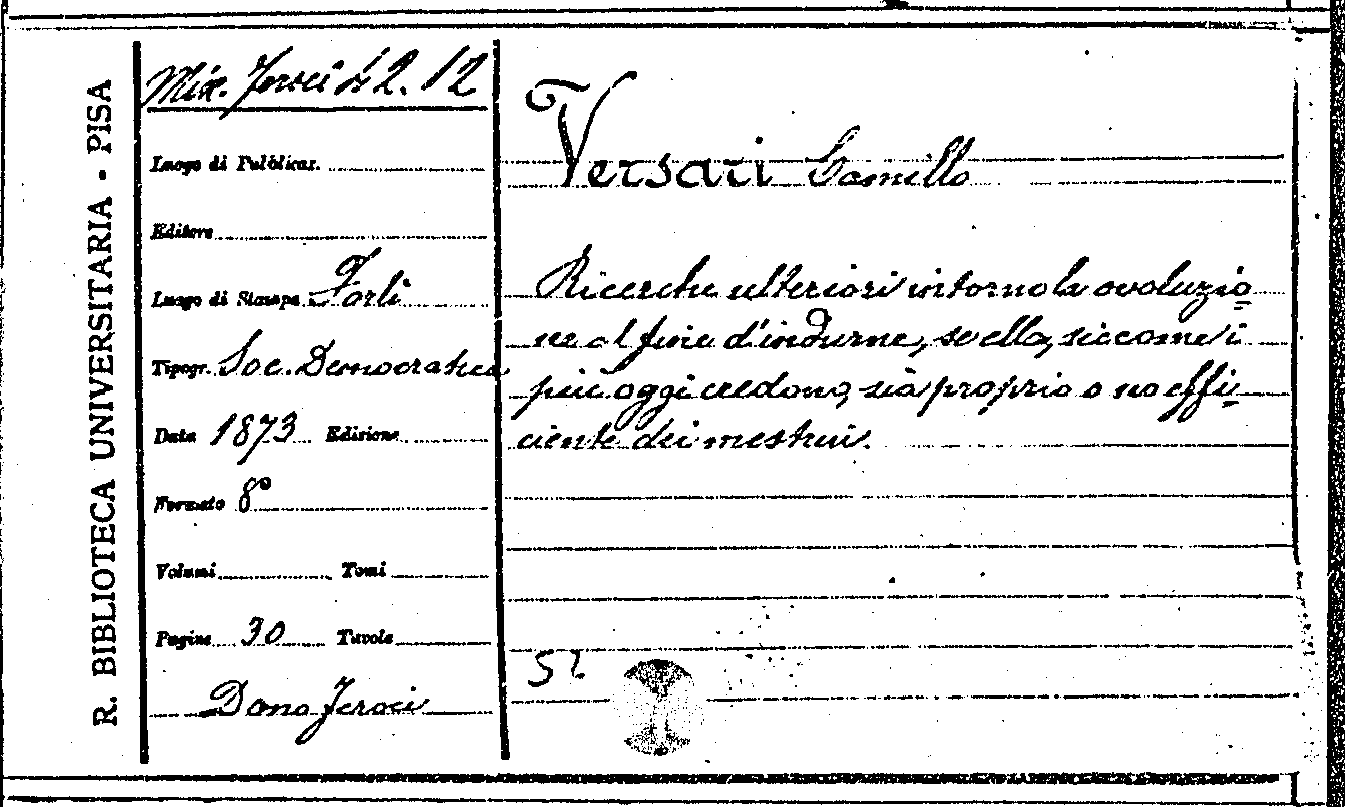 R. BIBLIOTECA UNIVERSITARIA - PISA
Mix. Feroci 2. 12
Luogo di Pubblicaz.
Editore
Luogo di Stampa Forlì
Tipogr. Soc. Democratica
Data 1873 Edizione
Formato 8°
Volumi Tomi
Pagine 30 Tavole
Dono Feroci
Versari Camillo
Ricerche ulteriori intorno la ovoluzio
ne al fine d'indurne, se ella, siccome i
più oggi credono, sia proprio o no effi
ciente dei mestrui.
52